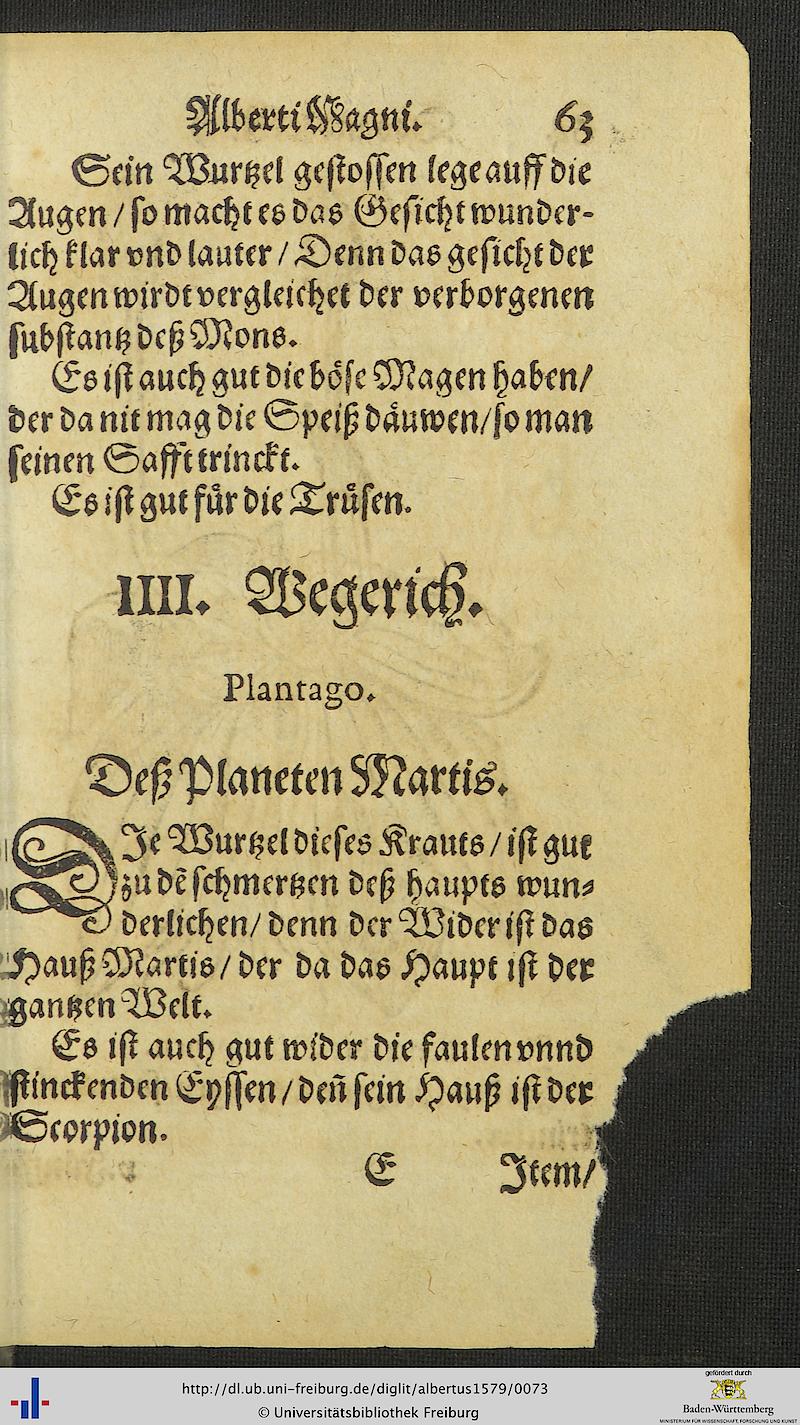 Alberti Magni. 63
Sein Wurtzel gestossen lege auff die
Augen / so macht es das Gesicht wunder-
lich klar vnd lauter / Denn das gesicht der
Augen wirdt vergleichet der verborgenen
substantz deß Mons.
Es ist auch gut die böse Magen haben /
der da nit mag die Speiß däuwen / so man
seinen Safft trinckt.
Es ist gut für die Trüsen.
IIII. Wegerich.
Plantago.
Deß Planeten Martis.
DJe Wurtzel dieses Krauts / ist gut
zu dẽ schmertzen deß haupts wun-
derlichen / denn der Wider ist das
Hauß Martis / der da das Haupt ist der
gantzen Welt.
Es ist auch gut wider die faulen vnnd
stinckenden Eyssen / deñ sein Hauß ist der
Scorpion.
E Jtem /
http://dl.ub.uni-freiburg.de/diglit/albertus1579/0073
© Universitätsbibliothek Freiburg
gefördert durch
Baden-Württemberg
MINISTERIUM FÜR WISSENSCHAFT, FORSCHUNG UND KUNST